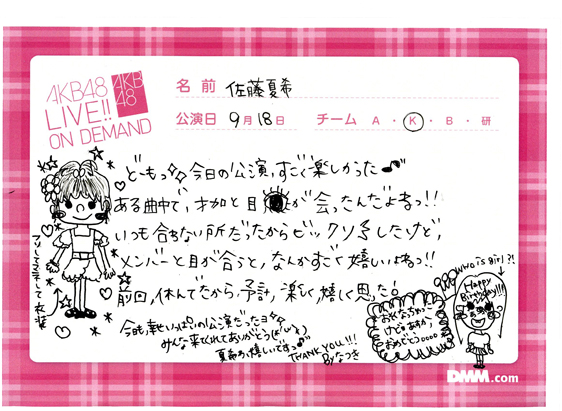 AKB48
LIVE!!
ON DEMAND
AKB
48
名前 佐藤夏希
公演日 9月18日 チーム A・K・B・研
ど〜もっ 今日の公演,すごく楽しかった
ある曲中で,才加と目が会ったんだよねっ!!
いつも合わない所だったからビックリしたけど,
メンバーと目が合うと,なんかすごく嬉しいよねっ!!
前回,休んでたから,予計,楽しく嬉しく思った!
今日も幸せいっぱいの公演だったヨ
みんな来てくれてありがとう
夏希わ嬉しいですっ
THANK YOU!!!
Byなつき
WHO is girl?!
Happy
Birthday!!!
おめでとう0000
DMM.com